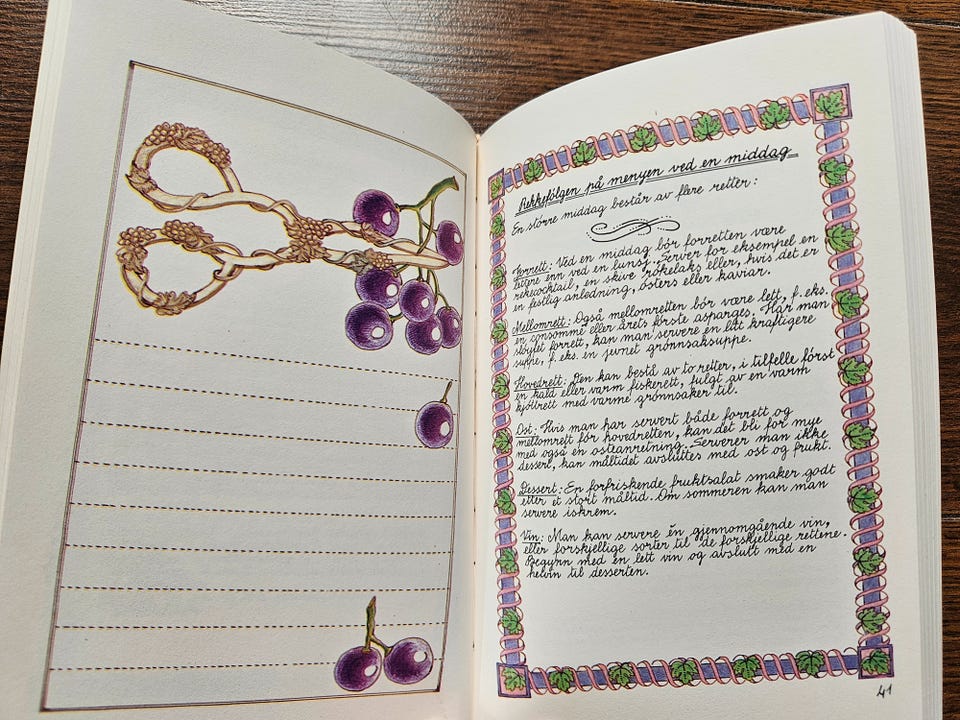 Rekkefølgen på menyen ved en middag
En større middag består av flere retter:
Forrett: Ved en middag bør forretten være
lettere enn ved en lunsj. Server for eksempel en
rekecocktail, en skive røkelaks eller, hvis det er
en festlig anledning, østers eller kaviar.
Mellomrett: Også mellomretten bør være lett, f. eks.
en consommé eller årets første asparges. Har man
sløyfet forrett, kan man servere en litt kraftigere
suppe, f. eks. en jevnet grønnsaksuppe.
Hovedrett: Den kan bestå av to retter, i tilfelle først
en kald eller varm fiskerett, fulgt av en varm
kjøttrett med varme grønnsaker til.
Ost: Hvis man har servert både forrett og
mellomrett før hovedretten, kan det bli for mye
med også en osteanretning. Serverer man ikke
dessert, kan måltidet avsluttes med ost og frukt.
Dessert: En forfriskende fruktsalat smaker godt
etter et stort måltid. Om sommeren kan man
servere iskrem.
Vin: Man kan servere én gjennomgående vin,
eller forskjellige sorter til de forskjellige rettene.
Begynn med en lett vin og avslutt med en
hetvin til desserten.
41